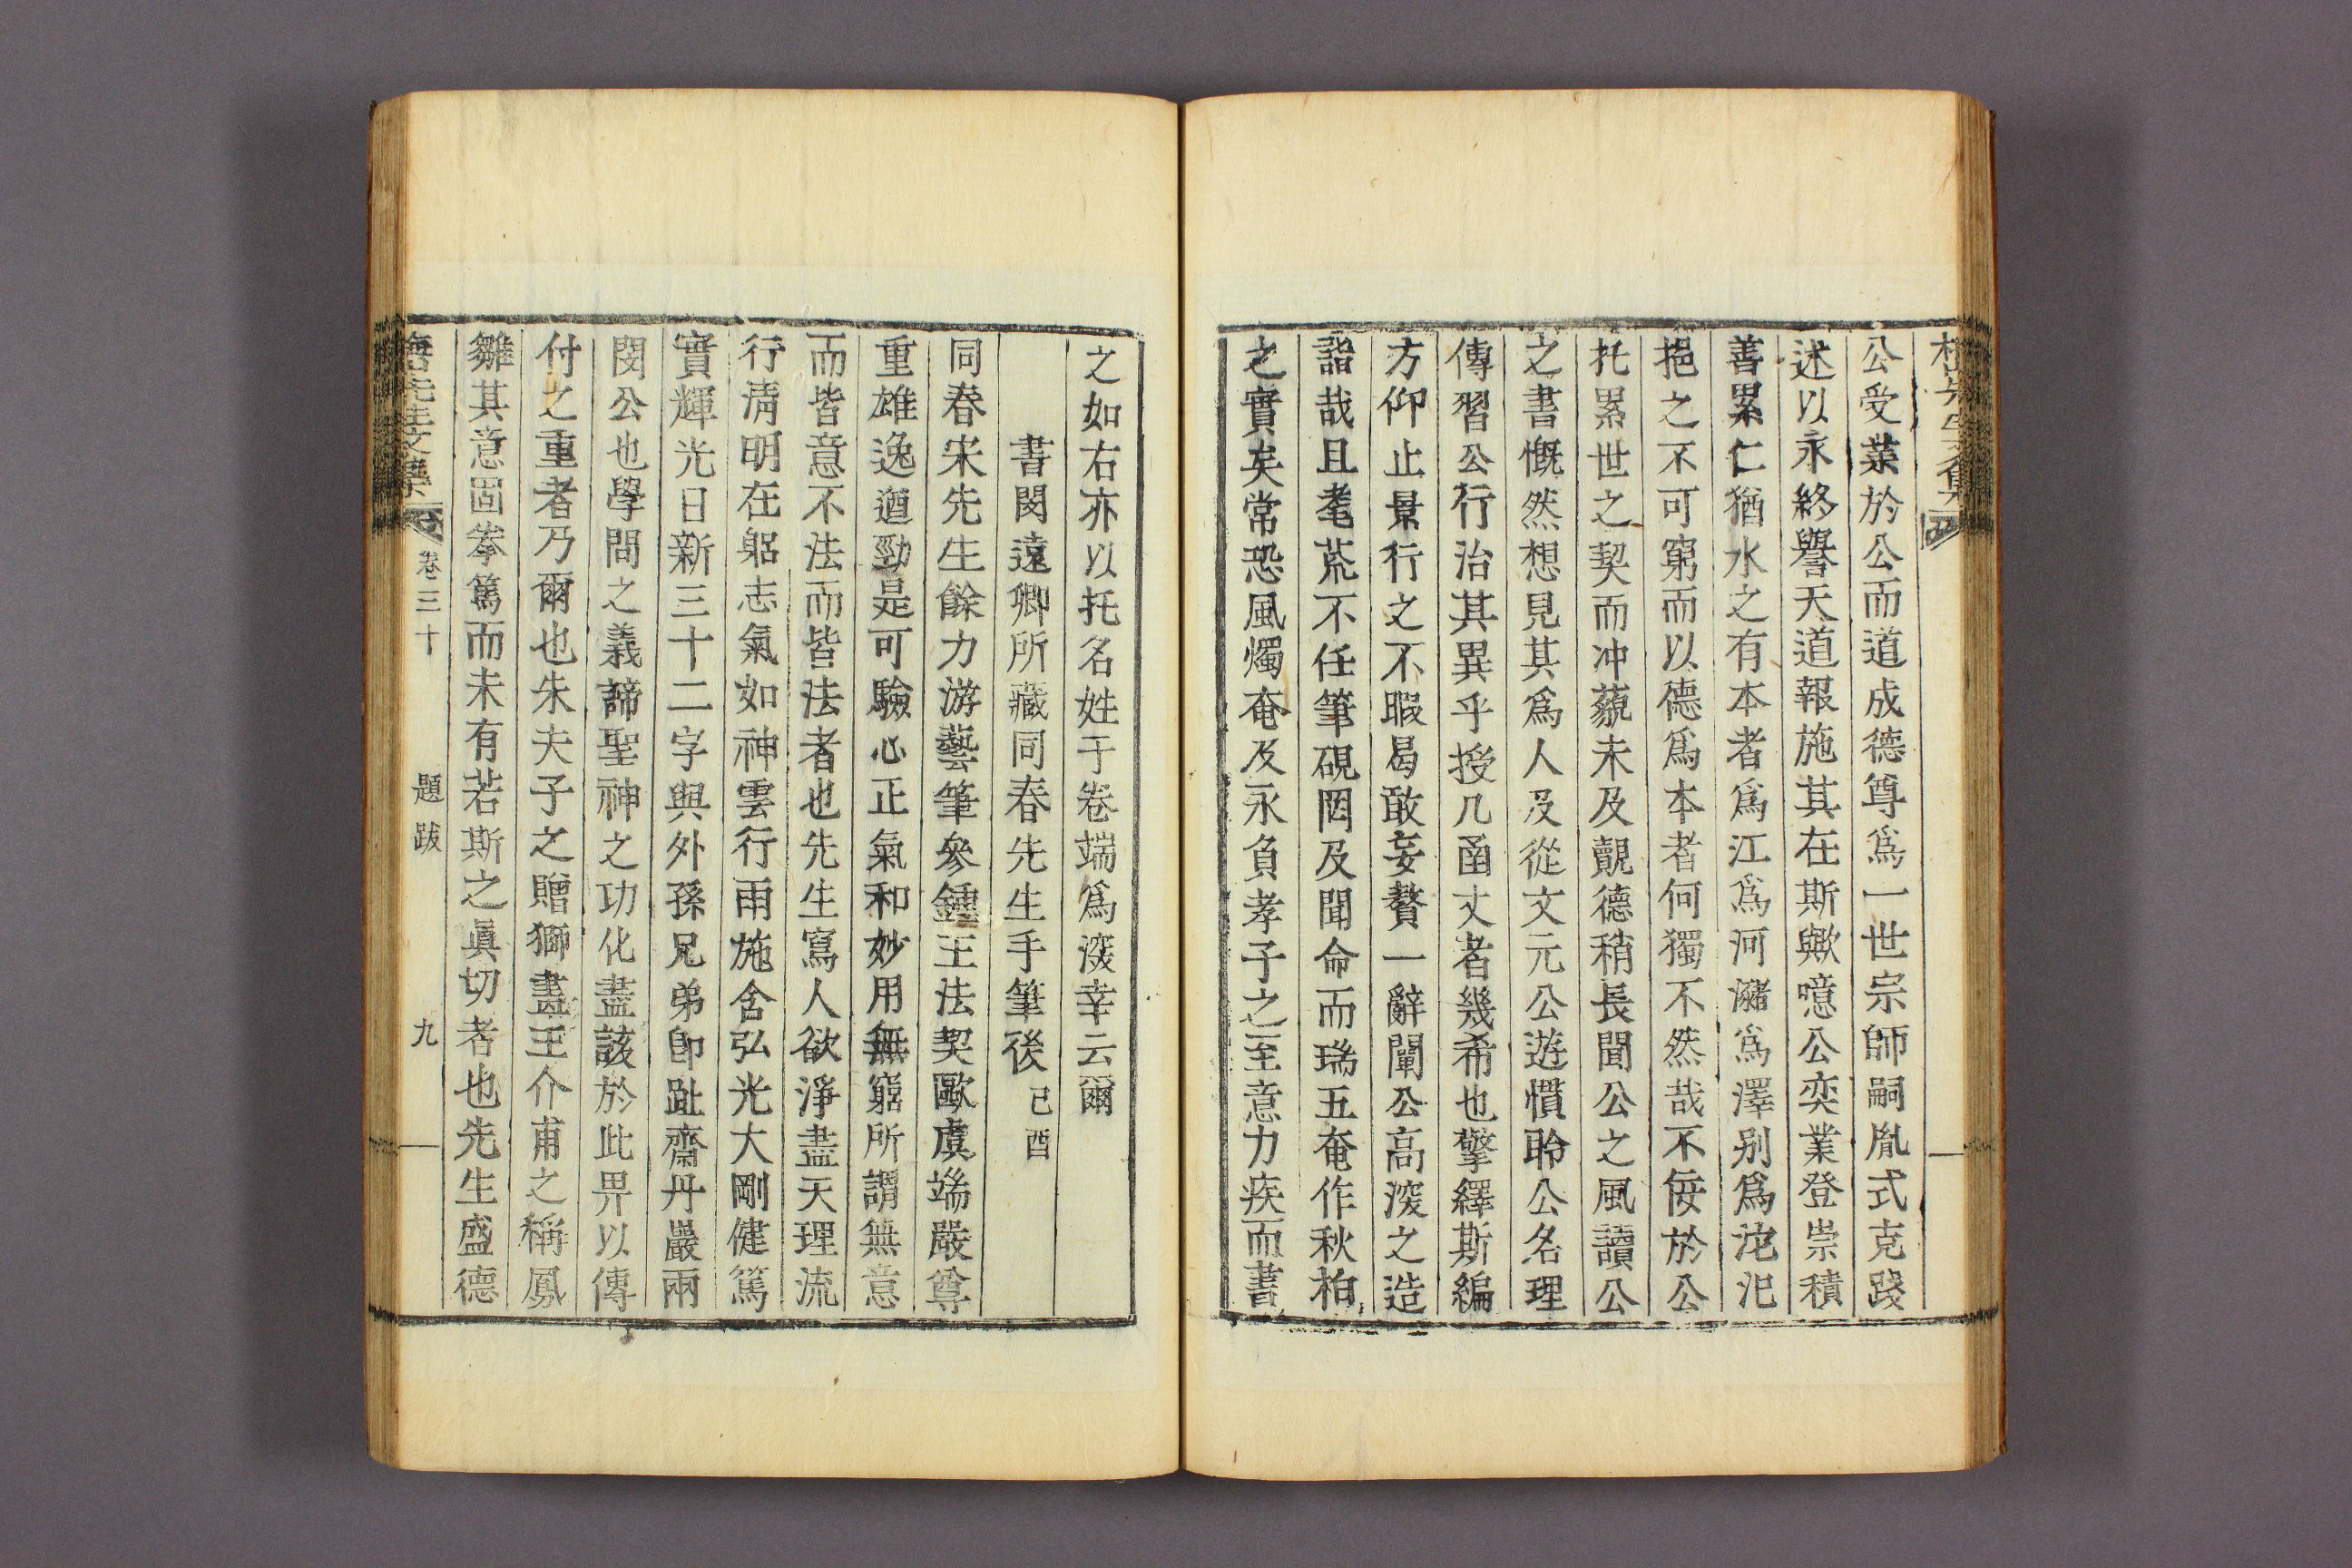 公受業於公而道成德尊爲一世宗師嗣胤式克踐
述以永終譽天道報施其在斯歟噫公奕業登崇積
善累仁猶水之有本者爲江爲河瀦爲澤别爲沱汜
挹之不可窮而以德爲本者何獨不然哉不佞於公
托累世之契而冲藐未及覿德稍長聞公之風讀公
之書慨然想見其爲人及從文元公遊慣聆公名理
傳習公行治其異乎授几函丈者幾希也擎繹斯編
方仰止景行之不暇曷敢妄贅一辭闡公高深之造
詣哉且耄荒不任筆硯罔及聞命而瑞五奄作秋柏
之實矣常恐風燭奄及永負孝子之至意力疾而書
之如右亦以托名姓于卷端爲深幸云爾
書閔遠卿所藏同春先生手筆後 己酉
同春宋先生餘力游藝筆參鍾王法契歐虞端嚴尊
重雄逸遒勁是可驗心正氣和妙用無窮所謂無意
而皆意不法而皆法者也先生寫人欲淨盡天理流
行淸明在躬志氣如神雲行雨施含弘光大剛健篤
實輝光日新三十二字與外孫兄弟卽趾齋丹巖兩
閔公也學問之義諦聖神之功化盡該於此畀以傳
付之重者乃爾也朱夫子之贈獅畫王介甫之稱鳳
雛其意固拳篤而未有若斯之眞切者也先生盛德
卷三十
題跋
九